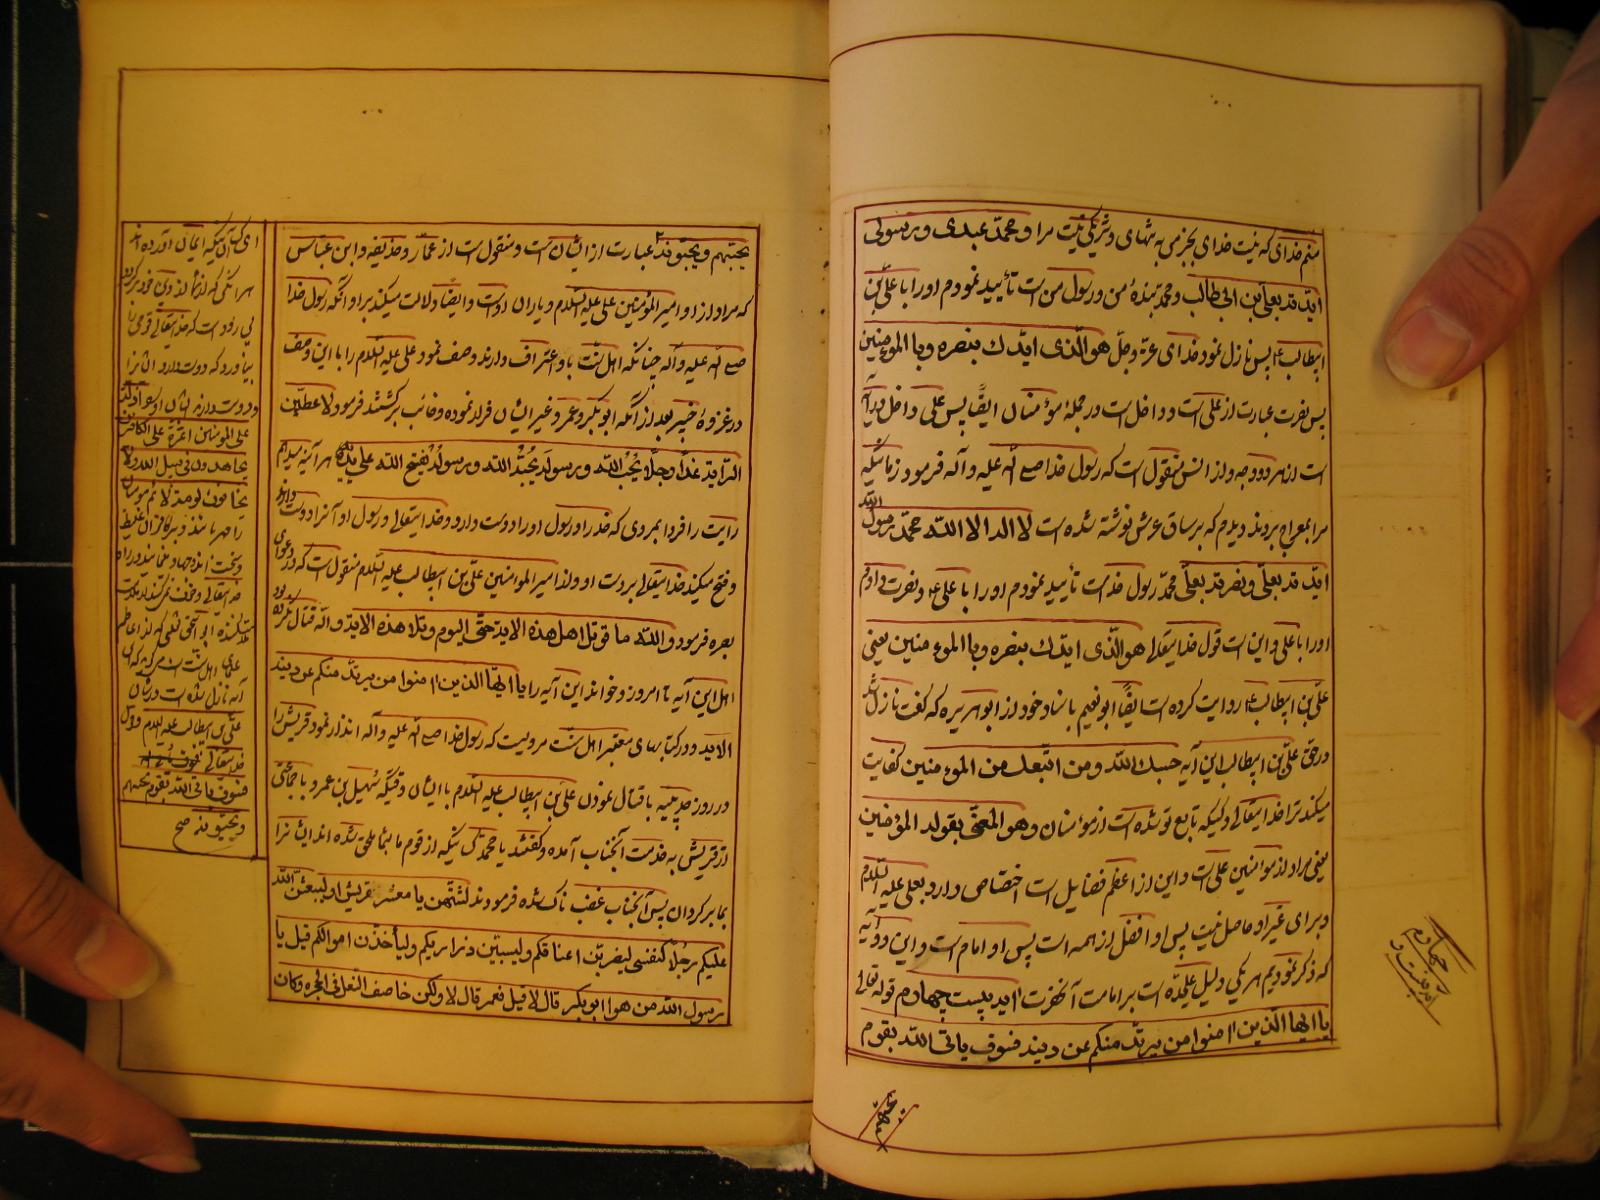 منم خدای که نیست خدای بجز من به تنهای و شریکی نیست مرا و محمد عبدی و رسولی
ایدته بعلی بن ابی طالب و محمد بنده من و رسول من است تأیید نمودم او را با علی بن
ابیطالب ع پس نازل نمود خدای عز و جل هو الذی ایدك بنصره و با المؤمنین
پس نصرت عبارت از علی است و داخل است در جمله مؤمنان ایضا پس علی داخل در آیه
است از هر دو وجه و از انس منقول است که رسول خدا صلی الله علیه و آله فرمود زمانیکه
مرا بمعراج بردند دیدم که بر ساق عرش نوشته شده است لا اله الا الله محمد رسول الله
ایدته بعلی و نصرته بعلی محمد رسول خداست تأیید نمودم او را با علی ع و نصرت دادم
او را با علی و این است قول خدایتعالی هو الذی ایدك بنصره و با المؤمنین یعنی
علی بن ابیطالب ع روایت کرده است ایضا ابو نعیم باسناد خود از ابو هریره که گفت نازل شد
در حق علی بن ابیطالب این آیه حسبك الله و من اتبعك من المؤمنین کفایت
میکند ترا خدایتعالی و کسیکه تابع تو شده است از مؤمنان و هو المعنی بقوله المؤمنین
یعنی مراد از مؤمنین علی است و این از اعظم فضایل است اختصاص دارد بعلی علیه السلام
و برای غیر او حاصل نیست پس او افضل از همه است پس او امام است و این دو آیه
که ذکر نمودیم هر یکی دلیل علیحده است بر امامت آنحضرت آیه بیست چهارم قوله تعالی
یا ایها الذین امنوا من یرتد منکم عن دینه فسوف یاتی الله بقوم
چهارم
یحبهم
یحبهم و یحبونه عبارت از ایشان است و منقول است از عمار و حذیفه و ابن عباس
که مراد از او امیر المؤمنین علی علیه السلام و یاران اوست و ایضا دلالت میکند بر او آنکه رسول خدا
صلی الله علیه و آله چنانکه اهل سنت باو اعتراف دارند وصف نمود علی علیه السلام را با این وصف
در غزوه خیبر بعد از آنکه ابو بکر و عمر و غیر ایشان فرار نموده و خائب برگشتند فرمود لاعطین
الرایة غدا رجلا یحب الله و رسوله یحبه الله و رسوله یفتح الله علی یده هر آینه میدهم
رایت را فردا بمردی که خدا و رسول او را دوست دارد و خدایتعالی و رسول او آنرا دوست دارند
و فتح میکند خدایتعالی بر دست او و از امیر المؤمنین علی بن ابیطالب علیه السلام منقول است که در دعوای
بصره فرمود و الله ما قوتل اهل هذه الایة حتی الیوم و تلا هذه الایة و الله قتال نکرده بود
اهل این آیه تا امروز و خواند این آیه را یا ایها الذین امنوا من یرتد منکم عن دینه
الایه و در کتابهای معتبر اهل سنت مرویست که رسول خدا صلی الله علیه و آله انذار نمود قریش را
در روز حدیبیه با قتال نمودن علی بن ابیطالب علیه السلام با ایشان وقتیکه سهیل بن عمرو با جماعتی
از قریش به خدمت آنجناب آمده و گفتند یا محمد کسانیکه از قوم ما بشما ملحق شده اند ایشانرا
بما برگردان پس آنجناب غضب ناك شده فرمودند لتنتهن یا معشر قریش او لیبعثن الله
علیکم رجلا کنفسی لیضربن اعناقکم و لیسبین ذراریکم و لیأخذن اموالکم قیل یا
رسول الله من هو ابو بکر قال لا قیل فعمر قال لا و لکن خاصف النعل فی الحجرة و کان
ای کسانیکه ایمان آورده اند
هر آنکس که از شما از دین خود برگردد
پس زود است که خدایتعالی قومی را
بیاورد که دوست دارد ایشانرا
و دوست دارند ایشان او را اذلة
علی المؤمنین اعزة علی الکافرین
یجاهدون فی سبیل الله و لا
یخافون لومة لائم
علی بن ابیطالب علیه السلام و قول
خدایتعالی
فسوف یاتی الله بقوم یحبهم
و یحبونه صح